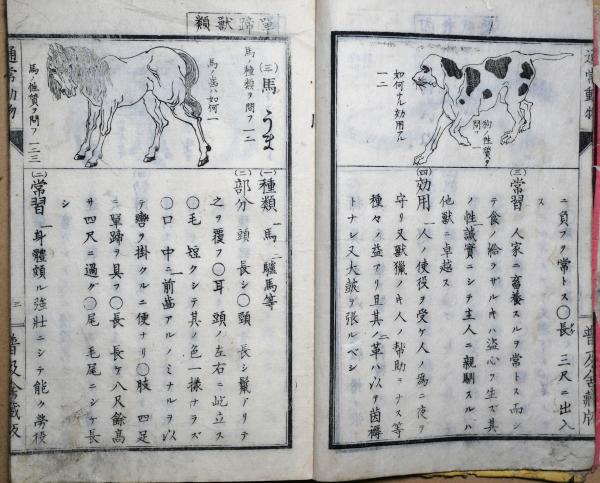 通常動物
普及舎蔵版
狗ノ性質ヲ問フ 一
如何ナル効用アル
一二
ニ負フヲ常トス〇長 三尺ニ出入
ス
(三)常習 人家ニ畜養スルヲ常トス而シ
テ食ノ給ラザルキハ盗心ヲ生ズ其
ノ性誠實ニシテ主人ニ親馴スルハ
他獣ニ卓越ス
(四)効用 一人ノ使役ヲ受ケ人ノ為ニ夜ヲ
守リ又獣獵ノキ人ノ幇助ヲナス等
種々ノ益アリ且其ノ革ハ以ヲ茵褥
トナシ又大皷ヲ張ルベシ
單蹄獣類
(三)馬 うま
馬ノ種類ヲ問フ 一二
馬ノ歯ハ如何 一
馬ノ性質ヲ問フ 一二三
(一)種類 馬 驢馬等
(二)部分 頭 長シ〇頸 長シ鬣アリテ
之ヲ覆フ〇耳 頭ノ左右ニ屹立ス
〇毛 短クシテ其ノ色一様ナラズ
〇口 中ニ前歯アルノミナルヲ以
テ轡ヲ掛クルニ便ナリ〇肢 四足
ニ單蹄ヲ具フ〇長 長ケ八尺餘高
サ四尺ニ過グ〇尾 毛尾ニシテ長
シ
(三)常習 身體頗ル強壮ニシテ能ク労役
通常動物
三
普及舎蔵版